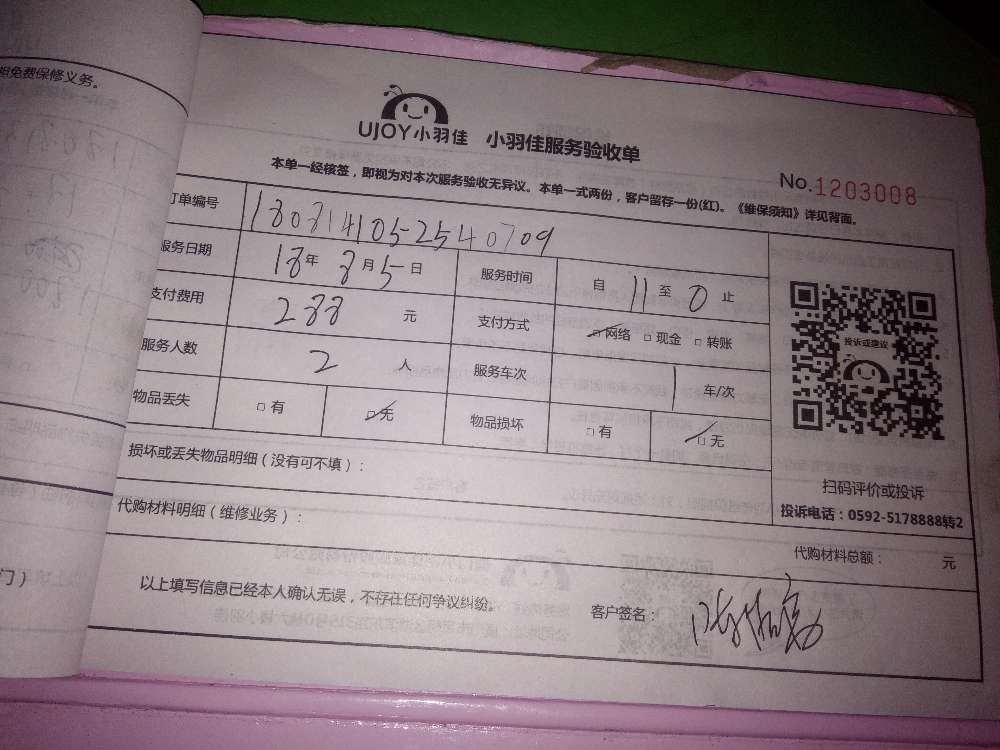 担免费保修义务。
UJOY小羽佳 小羽佳服务验收单
No.1203008
本单一经核签，即视为对本次服务验收无异议。本单一式两份，客户留存一份(红)。《维保须知》详见背面。
订单编号 180814105-2540709
服务日期 18年 8月5日 服务时间 自 11 至 0 止
支付费用 288 元 支付方式 □网络 □现金 □转账
服务人数 2 人 服务车次 1 车/次
物品丢失 □有 □无 物品损坏 □有 □无
投诉或建议
扫码评价或投诉
投诉电话：0592-5178888转2
损坏或丢失物品明细（没有可不填）：
代购材料明细（维修业务）：
代购材料总额： 元
门）
以上填写信息已经本人确认无误，不存在任何争议纠纷。 客户签名：